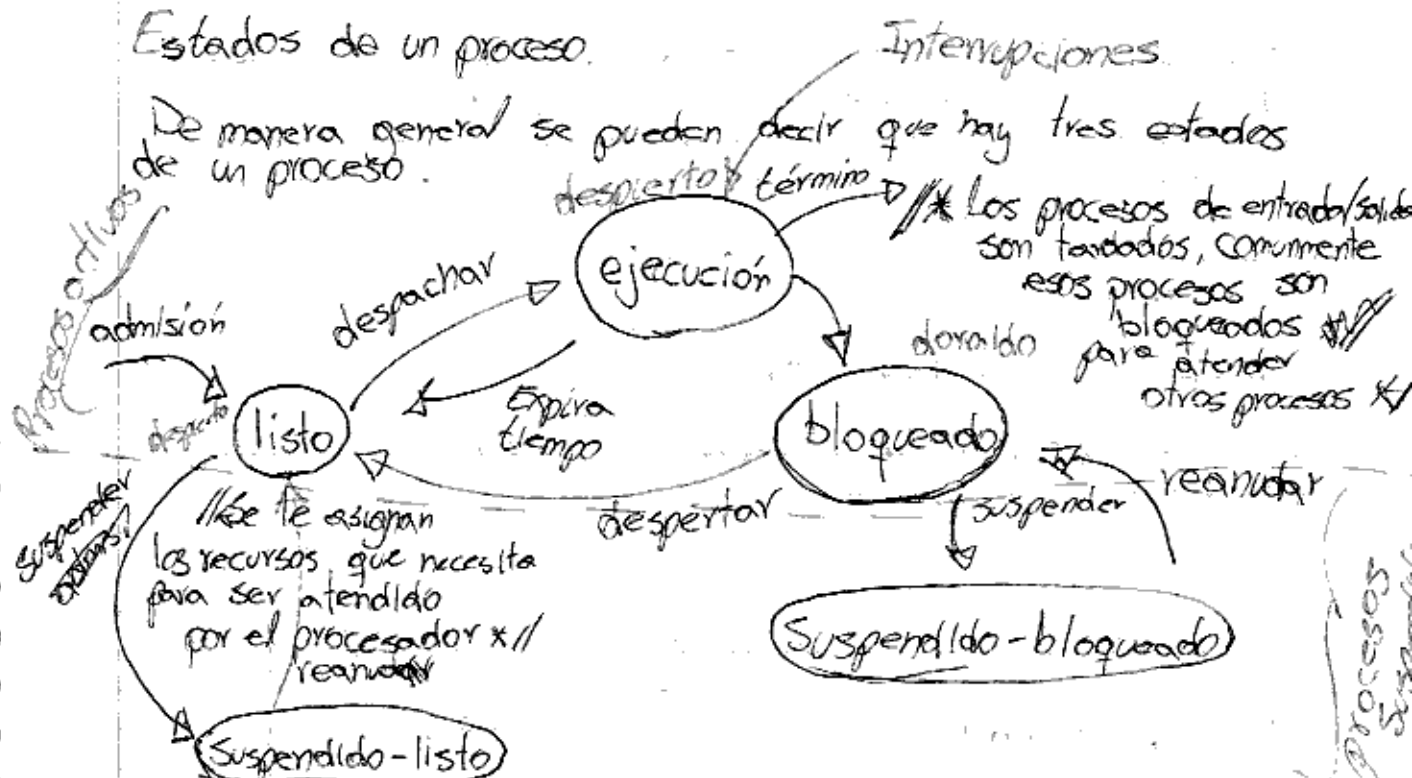 Estados de un proceso.
Interrupciones
De manera general se pueden decir que hay tres estados
de un proceso.
despierto
término
//* Los procesos de entrada/salida
son tardados, comunmente
esos procesos son
bloqueados *//
para atender
otros procesos *//
Procesos activos
admisión
despachar
ejecución
dormido
Expira
tiempo
despierto
listo
bloqueado
despertar
suspender
reanudar
suspender
//*Se le asignan
los recursos que necesita
para ser atendido
por el procesador *//
reanudar
Suspendido-bloqueado
Procesos
Suspendido-listo